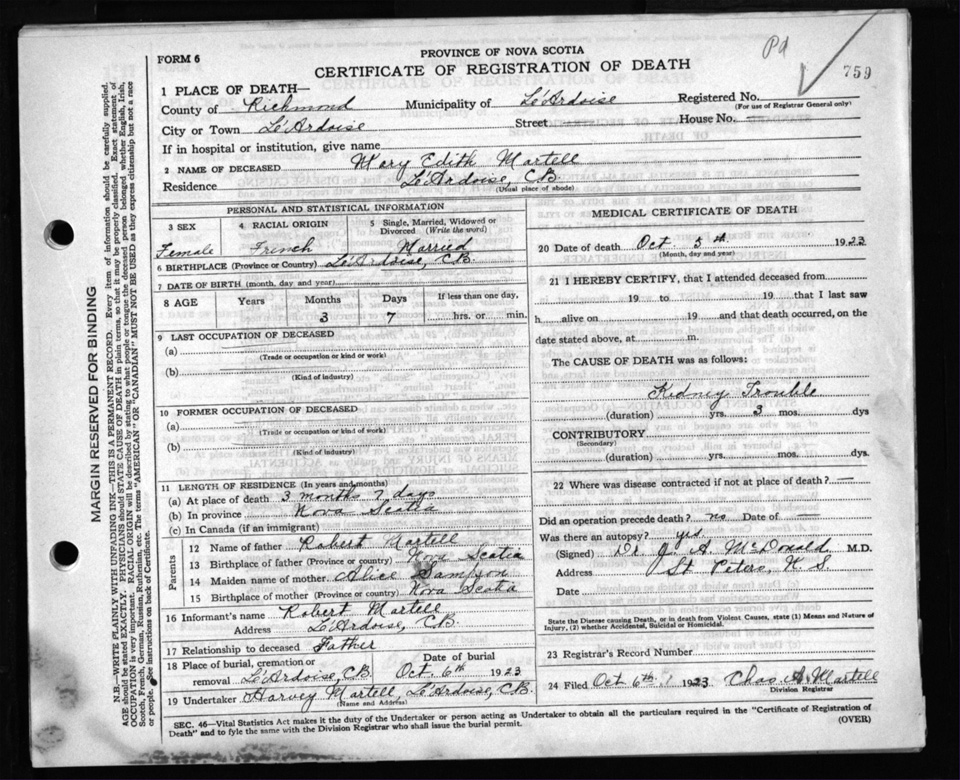 Pd
759
FORM 6
PROVINCE OF NOVA SCOTIA
CERTIFICATE OF REGISTRATION OF DEATH
1 PLACE OF DEATH—
County of Richmond Municipality of Le'Ardoise Registered No.
(For use of Registrar General only)
City or Town Le'Ardoise Street — House No. —
If in hospital or institution, give name
2 NAME OF DECEASED Mary Edith Martell
Residence Le'Ardoise, C.B.
(Usual place of abode)
PERSONAL AND STATISTICAL INFORMATION
3 SEX Female
4 RACIAL ORIGIN French
5 Single, Married, Widowed or Divorced (Write the word) Married
6 BIRTHPLACE (Province or Country) Le'Ardoise, C.B.
7 DATE OF BIRTH (month, day and year)
8 AGE Years Months Days If less than one day,
3 7 hrs. or min.
9 LAST OCCUPATION OF DECEASED
(a)
(Trade or occupation or kind or work)
(b)
(Kind of industry)
10 FORMER OCCUPATION OF DECEASED
(a)
(Trade or occupation or kind of work)
(b)
(Kind of industry)
11 LENGTH OF RESIDENCE (In years and months)
(a) At place of death 3 months 7 days
(b) In province Nova Scotia
(c) In Canada (if an immigrant)
Parents
12 Name of father Robert Martell
13 Birthplace of father (Province or country) Nova Scotia
14 Maiden name of mother Alice Sampson
15 Birthplace of mother (Province or country) Nova Scotia
16 Informant's name Robert Martell
Address Le'Ardoise, C.B.
17 Relationship to deceased Father
18 Place of burial, cremation or removal Le'Ardoise, C.B. Date of burial Oct. 6th 1923
19 Undertaker Harvey Martell, Le'Ardoise, C.B.
(Name and Address)
MEDICAL CERTIFICATE OF DEATH
20 Date of death Oct. 5th 1923
(Month, day and year)
21 I HEREBY CERTIFY, that I attended deceased from
19 to 19 that I last saw
h alive on 19 and that death occurred, on the
date stated above, at m.
The CAUSE OF DEATH was as follows:
Kidney Trouble
(duration) yrs. 3 mos. dys
CONTRIBUTORY
(Secondary)
(duration) yrs. mos. dys.
22 Where was disease contracted if not at place of death? —
Did an operation precede death? no Date of —
Was there an autopsy? yes
(Signed) Dr. J. A. McDonald M.D.
Address St. Peters, N.S.
Date
State the Disease causing Death, or in death from Violent Causes, state (1) Means and Nature of
Injury, (2) whether Accidental, Suicidal or Homicidal.
23 Registrar's Record Number
24 Filed Oct 6th 1923 Chas. A. Martell
Division Registrar
SEC. 46—Vital Statistics Act makes it the duty of the Undertaker or person acting as Undertaker to obtain all the particulars required in the "Certificate of Registration of
Death" and to fyle the same with the Division Registrar who shall issue the burial permit.
(OVER)
MARGIN RESERVED FOR BINDING
N.B.—WRITE PLAINLY WITH UNFADING INK—THIS IS A PERMANENT RECORD. Every item of information should be carefully supplied.
AGE should be stated EXACTLY. PHYSICIANS should STATE CAUSE OF DEATH in plain terms, so that it may be properly classified. Exact statement of
OCCUPATION is very important. RACIAL ORIGIN will be described by stating to what people or tongue the deceased person belonged whether English, Irish,
Scotch, French, German, Russian, Ruthenian, etc. The terms "AMERICAN" or "CANADIAN" MUST NOT BE USED as they express citizenship but not a race
or people. See instructions on back of Certificate.